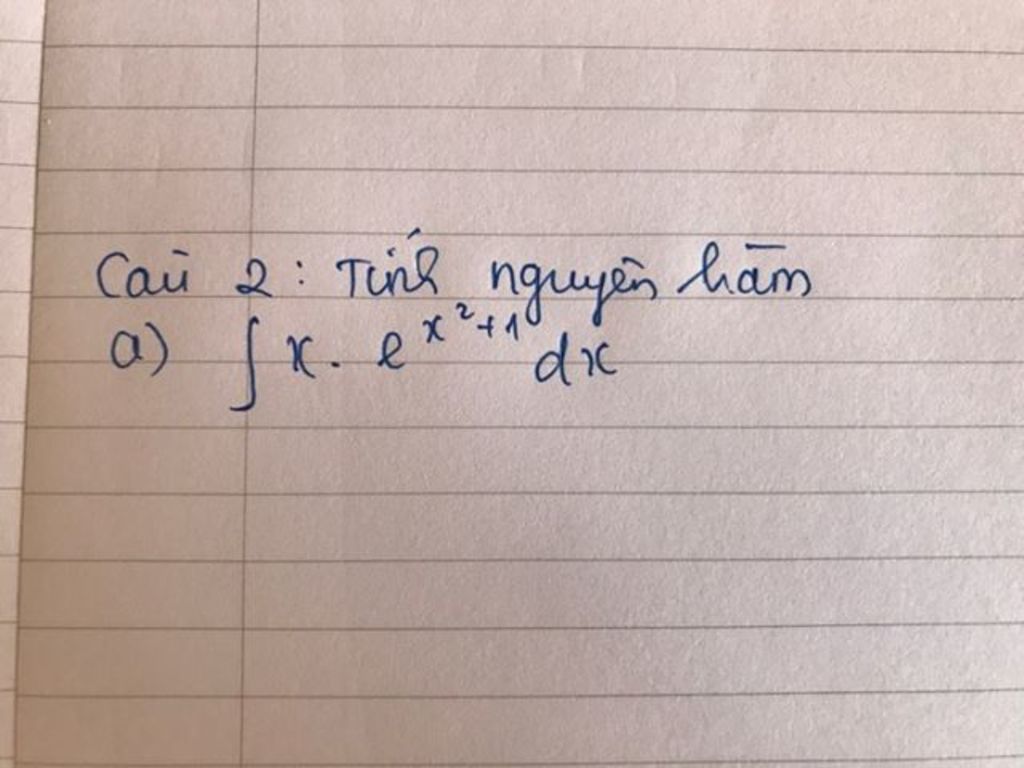 Câu 2: Tính nguyên hàm
a) ∫ x. e^{x^2+1} dx